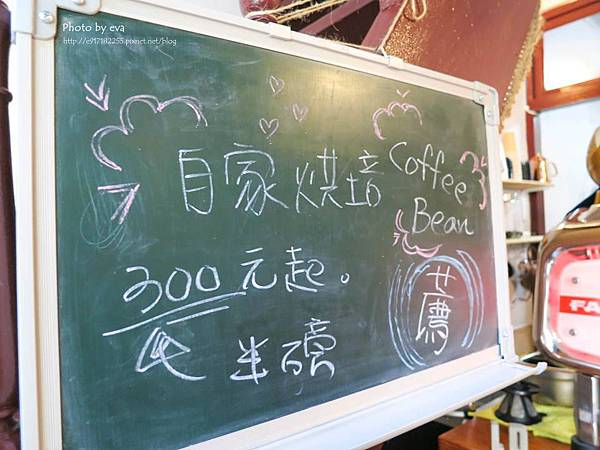 Photo by eva
http://c917182255.pixnet.net/blog
自家烘培
Coffee
Bean
300元起。
半磅
FA